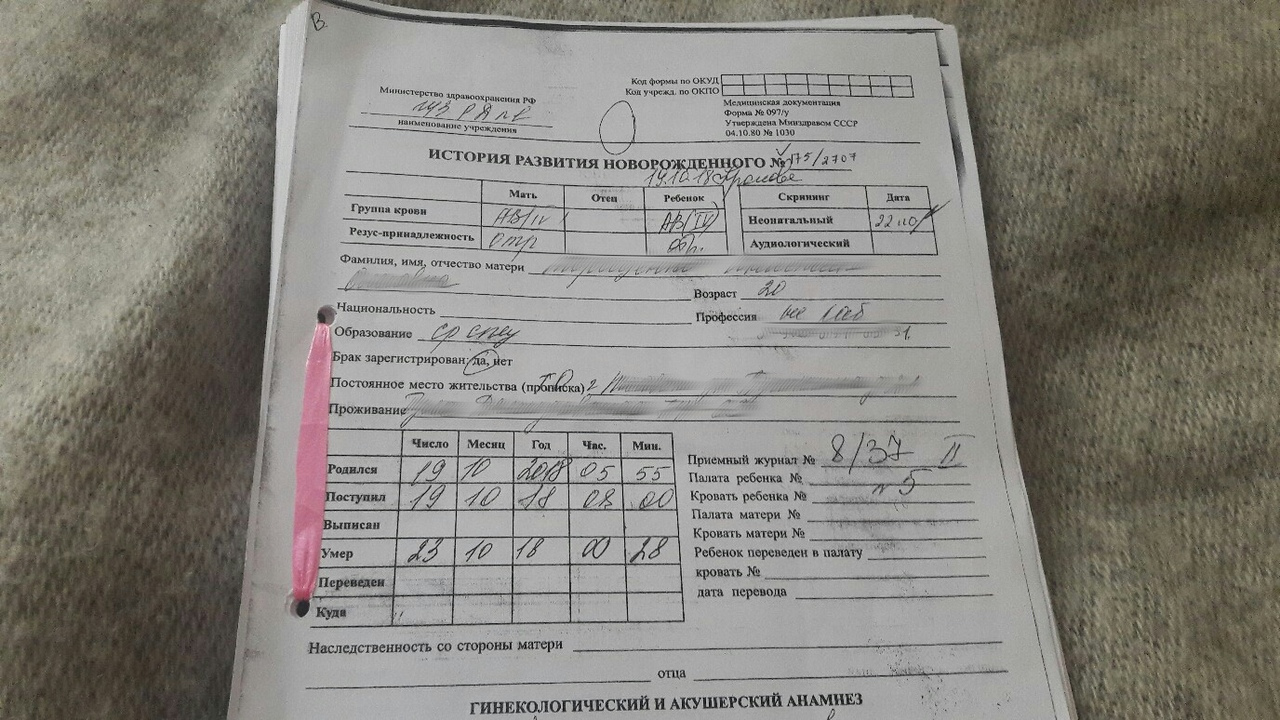 В.
Код формы по ОКУД
Код учрежд. по ОКПО
Министерство здравоохранения РФ
наименование учреждения
Медицинская документация
Форма № 097/у
Утверждена Минздравом СССР
04.10.80 № 1030
ИСТОРИЯ РАЗВИТИЯ НОВОРОЖДЕННОГО № 175/2707
19.10.18
Мать Отец Ребенок
Группа крови АВ/IV АВ(IV)
Резус-принадлежность отр
Скрининг Дата
Неонатальный 22.10
Аудиологический
Фамилия, имя, отчество матери
Возраст 20
Национальность
Профессия не раб
Образование ср спец
Брак зарегистрирован: да, нет
Постоянное место жительства (прописка) г
Проживание
Число Месяц Год Час. Мин.
Родился 19 10 2018 05 55
Поступил 19 10 18 08 00
Выписан
Умер 23 10 18 00 28
Переведен
Куда
Приемный журнал № 8/37 II
Палата ребенка №
Кровать ребенка № 5
Палата матери №
Кровать матери №
Ребенок переведен в палату
кровать №
дата перевода
Наследственность со стороны матери
отца
ГИНЕКОЛОГИЧЕСКИЙ И АКУШЕРСКИЙ АНАМНЕЗ